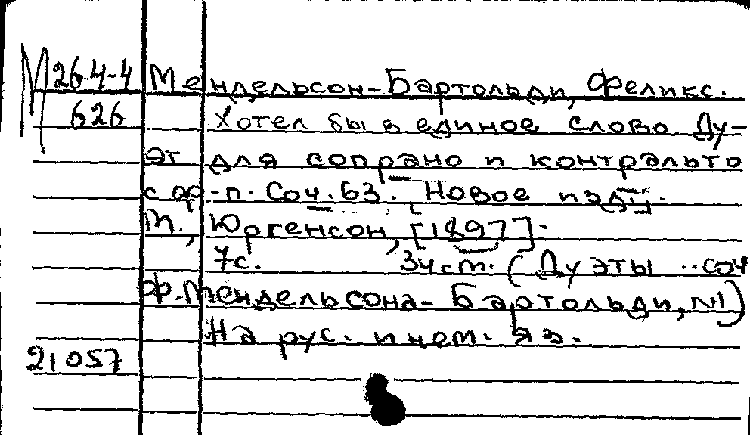 М 264-4 Мендельсон-Бартольди, Феликс.
626 Хотел бы в единое слово Ду-
эт для сопрано и контральто
с ф-п. Соч. 63. Новое изд.
М., Юргенсон, [1897].
7с. 34см. (Дуэты .. соч
Ф. Мендельсона-Бартольди, №1)
На рус. и нем. яз.
21057